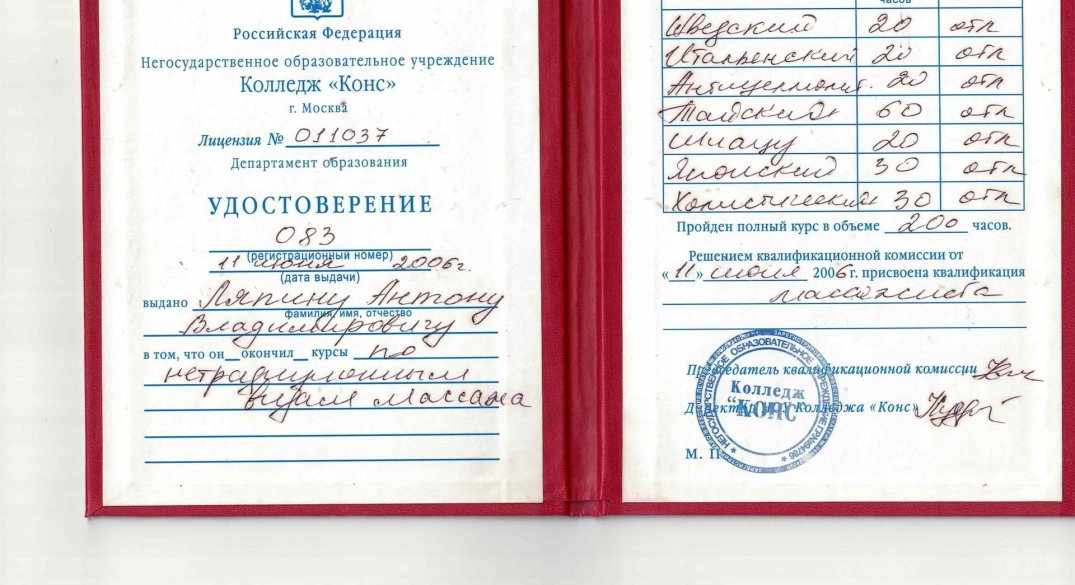 Российская Федерация
Негосударственное образовательное учреждение
Колледж «Конс»
г. Москва
Лицензия № 011037
Департамент образования
УДОСТОВЕРЕНИЕ
083
(регистрационный номер)
11 июня 2006г.
(дата выдачи)
выдано Ляпину Антону
фамилия, имя, отчество
Владимировичу
в том, что он окончил курсы по
нетрадиционным
видам массажа
часов
Шведский 20 отл
Итальенский 20 отл
Антицеллюлит. 20 отл
Тайский 60 отл
Шиацу 20 отл
Японский 30 отл
Холистический 30 отл
Пройден полный курс в объеме 200 часов.
Решением квалификационной комиссии от
«11» июля 2006г. присвоена квалификация
массажиста
Председатель квалификационной комиссии
Директор НОУ Колледжа «Конс»
М. П.
Колледж
"КОНС"
НЕГОСУДАРСТВЕННОЕ ОБРАЗОВАТЕЛЬНОЕ УЧРЕЖДЕНИЕ